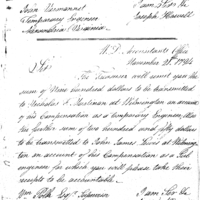 John Vermonnet
Temporary Engineer
Alexandria Virginia
I am Sir &c
Joseph Howell
W.D. Accountants Office
November 21, 1794
Sir
The Treasurer will remit you the
sum of Nine hundred dollars to be transmitted
to Nicholas F. Martinon at Wilmington on account
of his Compensation as a temporary Engineer, Also
the further sum of two hundred and fifty dollars
to be transmitted to John James
on account of his Compensation as a
engineer for which you will please take their
receipts to be accountable.
Wm Polk Esqr Supervisor
I am Sir &c